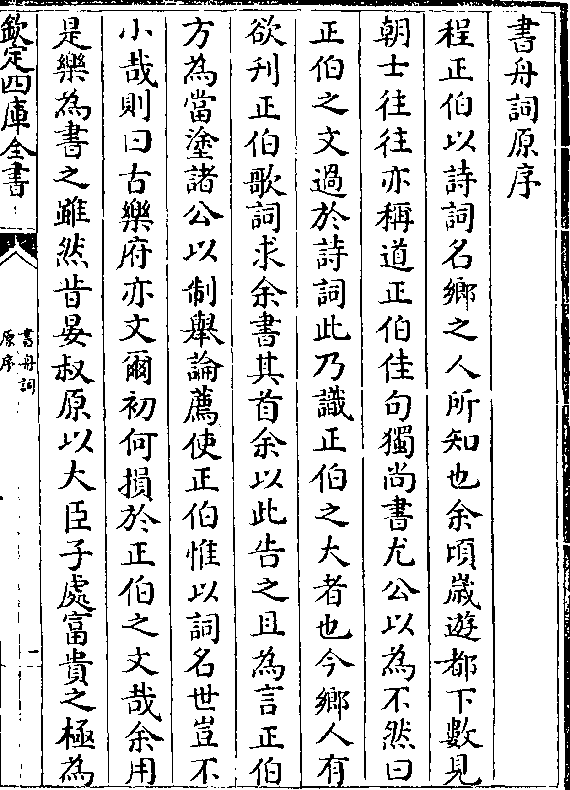 書舟詞原序
程正伯以詩詞名鄉之人所知也余頃歲遊都下數見
朝士往往亦稱道正伯佳句獨尚書尤公以為不然曰
正伯之文過於詩詞此乃識正伯之大者也今鄉人有
欲刋正伯歌詞求余書其首余以此告之且為言正伯
方為當塗諸公以制舉論薦使正伯惟以詞名世豈不
小哉則曰古樂府亦文爾初何損於正伯之文哉余用
是樂為書之雖然昔晏叔原以大臣子處富貴之極為
欽定四庫全書
書舟詞
原序
一